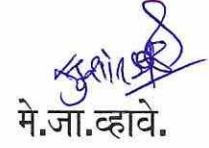 मे.जा.व्हावे.